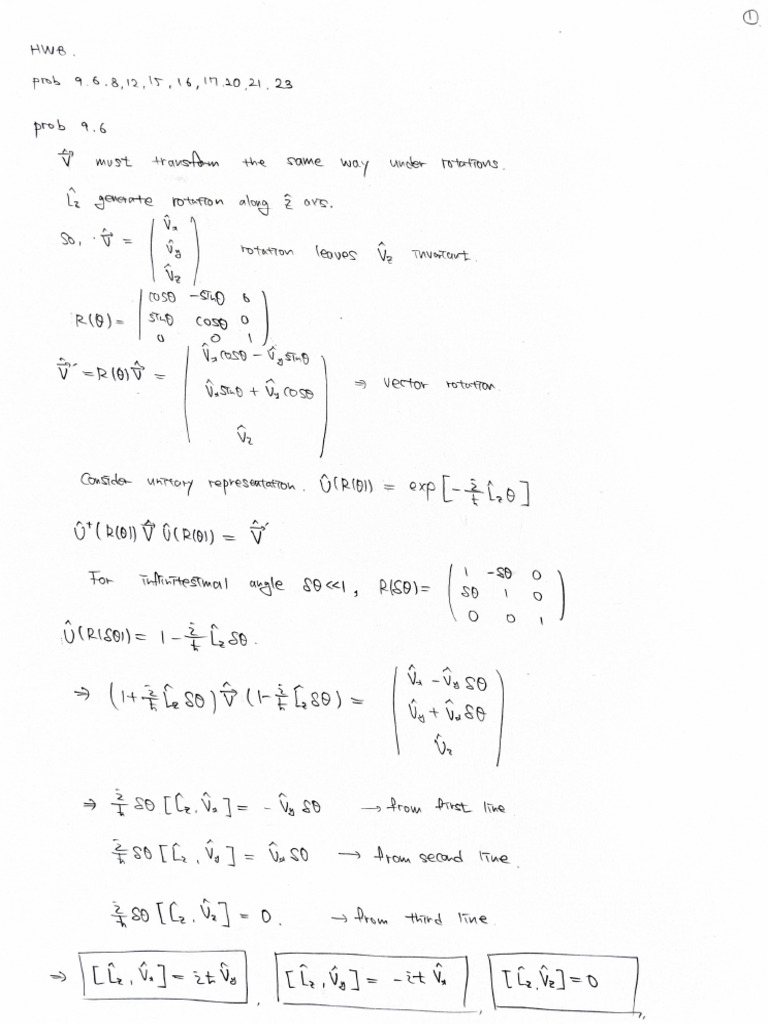 ①
HW8.
prob 9.6.8,12,15,16,17.20,21,23
prob 9.6
V̂⃗ must transform the same way under rotations.
L̂z generate rotation along ẑ axs.
So, V̂⃗ = ( V̂x V̂y V̂z ) rotation leaves V̂z invariant.
R(θ) = ( cosθ -sinθ 0 ; sinθ cosθ 0 ; 0 0 1 )
V̂⃗′ = R(θ)V̂⃗ = ( V̂x cosθ - V̂y sinθ ; V̂x sinθ + V̂y cosθ ; V̂z ) ⇒ vector rotation.
Consider unitary representation. Û(R(θ)) = exp[-i/ħ L̂zθ]
Û⁺(R(θ)) V̂⃗ Û(R(θ)) = V̂⃗′
For infinitesimal angle δθ<<1, R(δθ) = ( 1 -δθ 0 ; δθ 1 0 ; 0 0 1 )
Û(R(δθ)) = 1 - i/ħ L̂z δθ.
⇒ (1 + i/ħ L̂z δθ) V̂⃗ (1 - i/ħ L̂z δθ) = ( V̂x - V̂y δθ ; V̂y + V̂x δθ ; V̂z )
⇒ i/ħ δθ [L̂z, V̂x] = - V̂y δθ → from first line
i/ħ δθ [L̂z, V̂y] = V̂x δθ → from second line.
i/ħ δθ [L̂z, V̂z] = 0. → from third line.
⇒ [L̂z, V̂x] = iħ V̂y , [L̂z, V̂y] = -iħ V̂x , [L̂z, V̂z] = 0 ,,